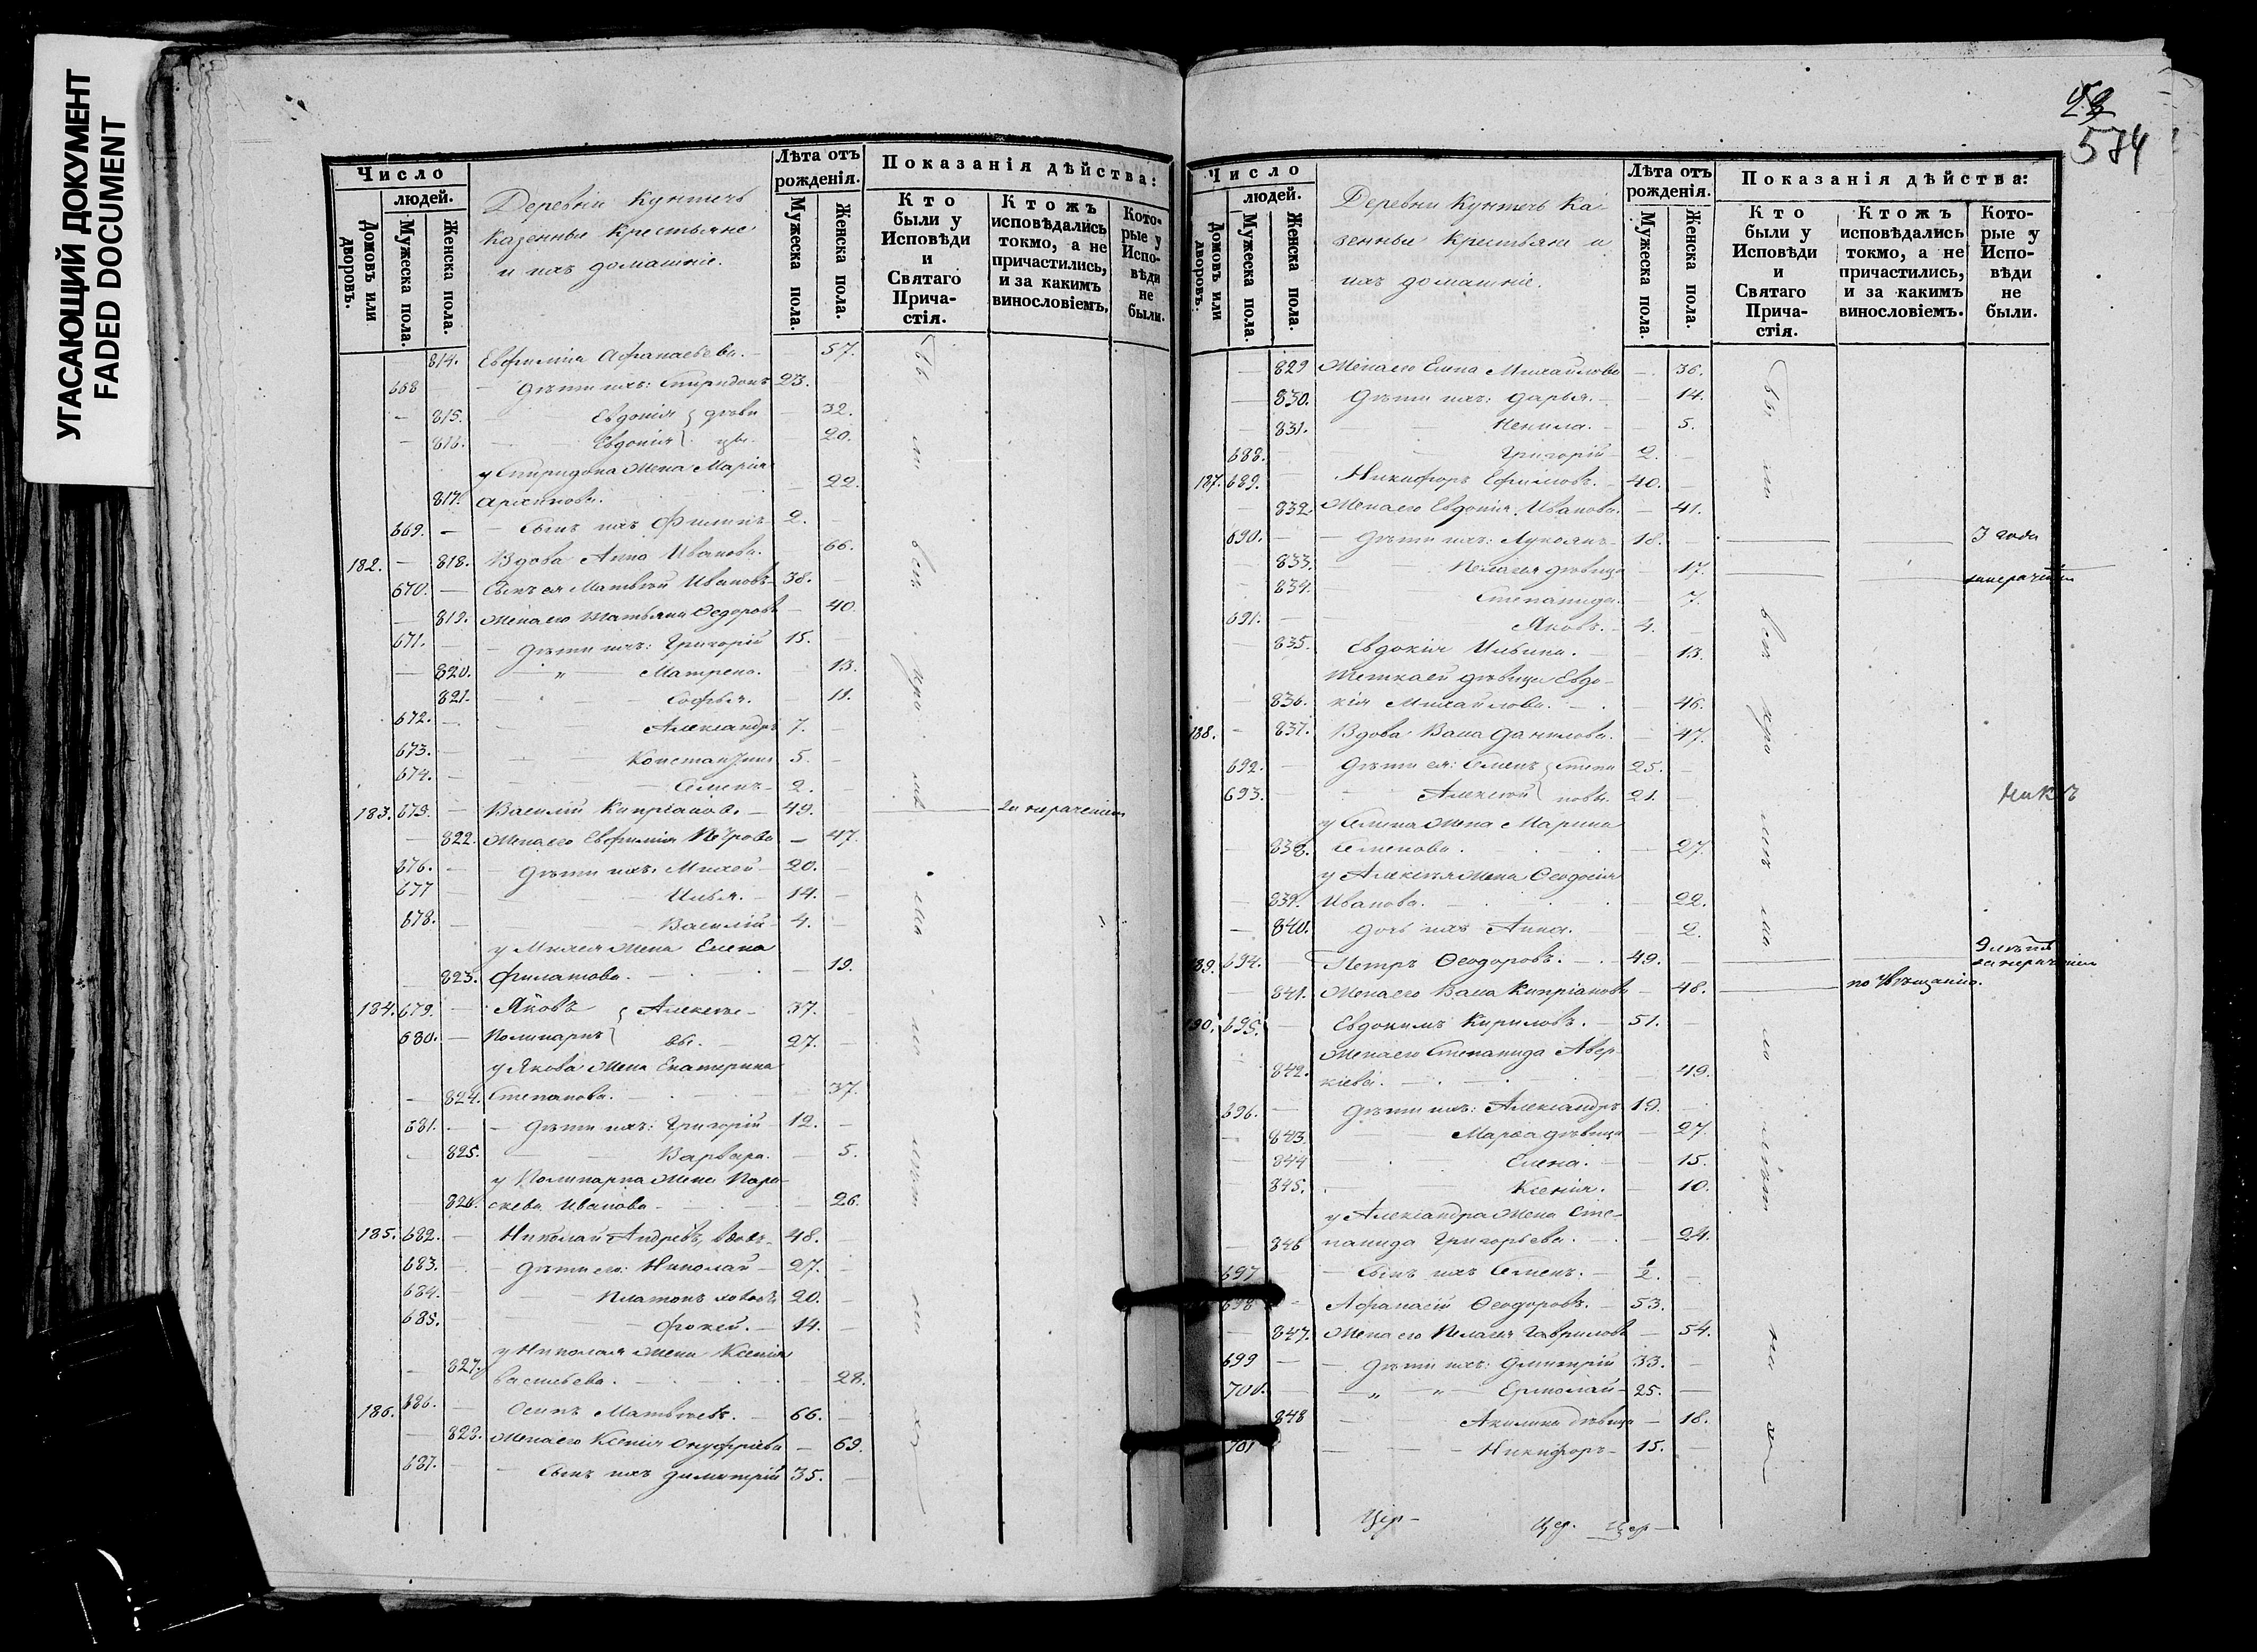 УГАСАЮЩИЙ ДОКУМЕНТ
FADED DOCUMENT
Число
людей.
Домовъ или дворовъ.
Мужеска пола.
Женска пола.
Деревни Кунтечь
Казенные Крестьяне
и ихъ домашніе.
Лѣта отъ рожденія.
Мужеска пола.
Женска пола.
Показанія дѣйства:
Кто были у Исповѣди и Святаго Причастія.
Ктожъ исповѣдались токмо, а не причастились, и за какимъ винословіемъ.
Которые у Исповѣди не были.
814. Евфимія Афанасьева. 57.
668 дѣти ихъ: Спиридонъ 23.
815. Евдокія } дѣви 32.
816. Евдокія } цы. 20.
у Спиридона Жена Марія
817. Архипова. 22.
669. Сынъ ихъ Филипъ 2.
182. 818. Вдова Анна Иванова. 66.
670. Сынъ ея Матвѣй Ивановъ 38.
819. Жена его Татьяна Ѳедорова 40.
671. дѣти ихъ: Григорій 15.
820. Матрена. 13.
821. Софья. 11.
672. Александръ 7.
673. Константинъ 5.
674. Семенъ 2.
183. 675. Василій Кипріановъ 49. за нераченіемъ
822. Жена его Евфимія Петрова 47.
676. дѣти ихъ: Михей 20.
677 Илья. 14.
678. Василій 4.
у Михея Жена Елена
823. Филатова. 19.
184. 679. Яковъ } Алексѣе- 37.
680. Поликарпъ } вы. 27.
у Якова Жена Екатерина
824. Степанова. 37.
681. дѣти ихъ: Григорій 12.
825. Варвара. 5.
у Поликарпа Жена Пара-
826. скева Иванова 26.
185. 682. Николай Андреевъ, вдовъ 48.
683. дѣти его: Николай 27.
684. Платонъ холостъ 20.
685. Фокей. 14.
у Николая Жена Ксенія
827. Васильева. 28.
186. 686. Осипъ Матвѣевъ. 66.
828. Жена его Ксенія Онуфріева 69.
687. Сынъ ихъ Димитрій 35.
574
Число
людей.
Домовъ или дворовъ.
Мужеска пола.
Женска пола.
Деревни Кунтечь Ка-
зенные Крестьяне и
ихъ домашніе.
Лѣта отъ рожденія.
Мужеска пола.
Женска пола.
Показанія дѣйства:
Кто были у Исповѣди и Святаго Причастія.
Ктожъ исповѣдались токмо, а не причастились, и за какимъ винословіемъ.
Которые у Исповѣди не были.
829 Жена его Елена Михайлова 36.
830. Дѣти ихъ: Дарья. 14.
831. Ненила. 5.
688. Григорій 2.
187. 689. Никифоръ Ефимовъ. 40.
832. Жена его Евдокія Иванова. 41.
690. дѣти ихъ: Лукьянъ 18. 3 года
833. Пелагея дѣвица 17. занераченіем
834. Степанида. 7.
691. Яковъ. 4.
835. Евдокія Ильина. 13.
Тетка ей дѣвица Евдо-
836. кія Михайлова. 46.
188. 837. Вдова Васа Данилова. 47.
692. Дѣти ея: Семенъ } Степа 25.
693. Алексѣй } новы. 21.
у Семена Жена Марина
838. Семенова. 27.
у Алексѣя Жена Ѳеодосія
839. Иванова. 22.
840. дочь ихъ Анна. 2.
189. 694. Петръ Ѳеодоровъ. 49. занераченіем
841. Жена его Васа Кипріанова 48.
190. 695. Евдокимъ Кириловъ. 51.
Жена его Степанида Авер-
842. кіева. 49.
696. дѣти ихъ: Александръ 19.
843. Марѳа дѣвица 27.
844 Елена. 15.
845. Ксенія. 10.
у Александра Жена Сте-
846 панида Григорьева. 24.
697 Сынъ ихъ Семенъ. 1/2.
698 Афанасій Ѳеодоровъ. 53.
847. Жена его Пелагея Гаврилова 54.
699 дѣти ихъ: Дмитрій 33.
700. Ермолай 25.
848 Акилина дѣвица 18.
701 Никифоръ 15.